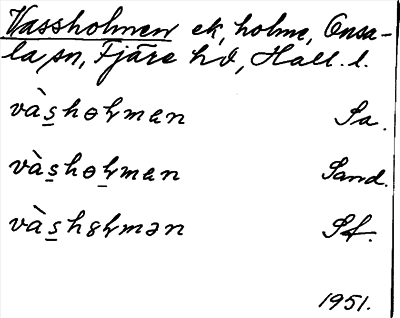 Vassholmen ek, holme, Onsa-
la sn, Fjäre hd, Hall. l.
và̀s̲hɵɫmɐn Sa.
và̀s̲hɵɫ̲mɐn Sand.
và̀s̲h8ɫmən Sf.
1951.